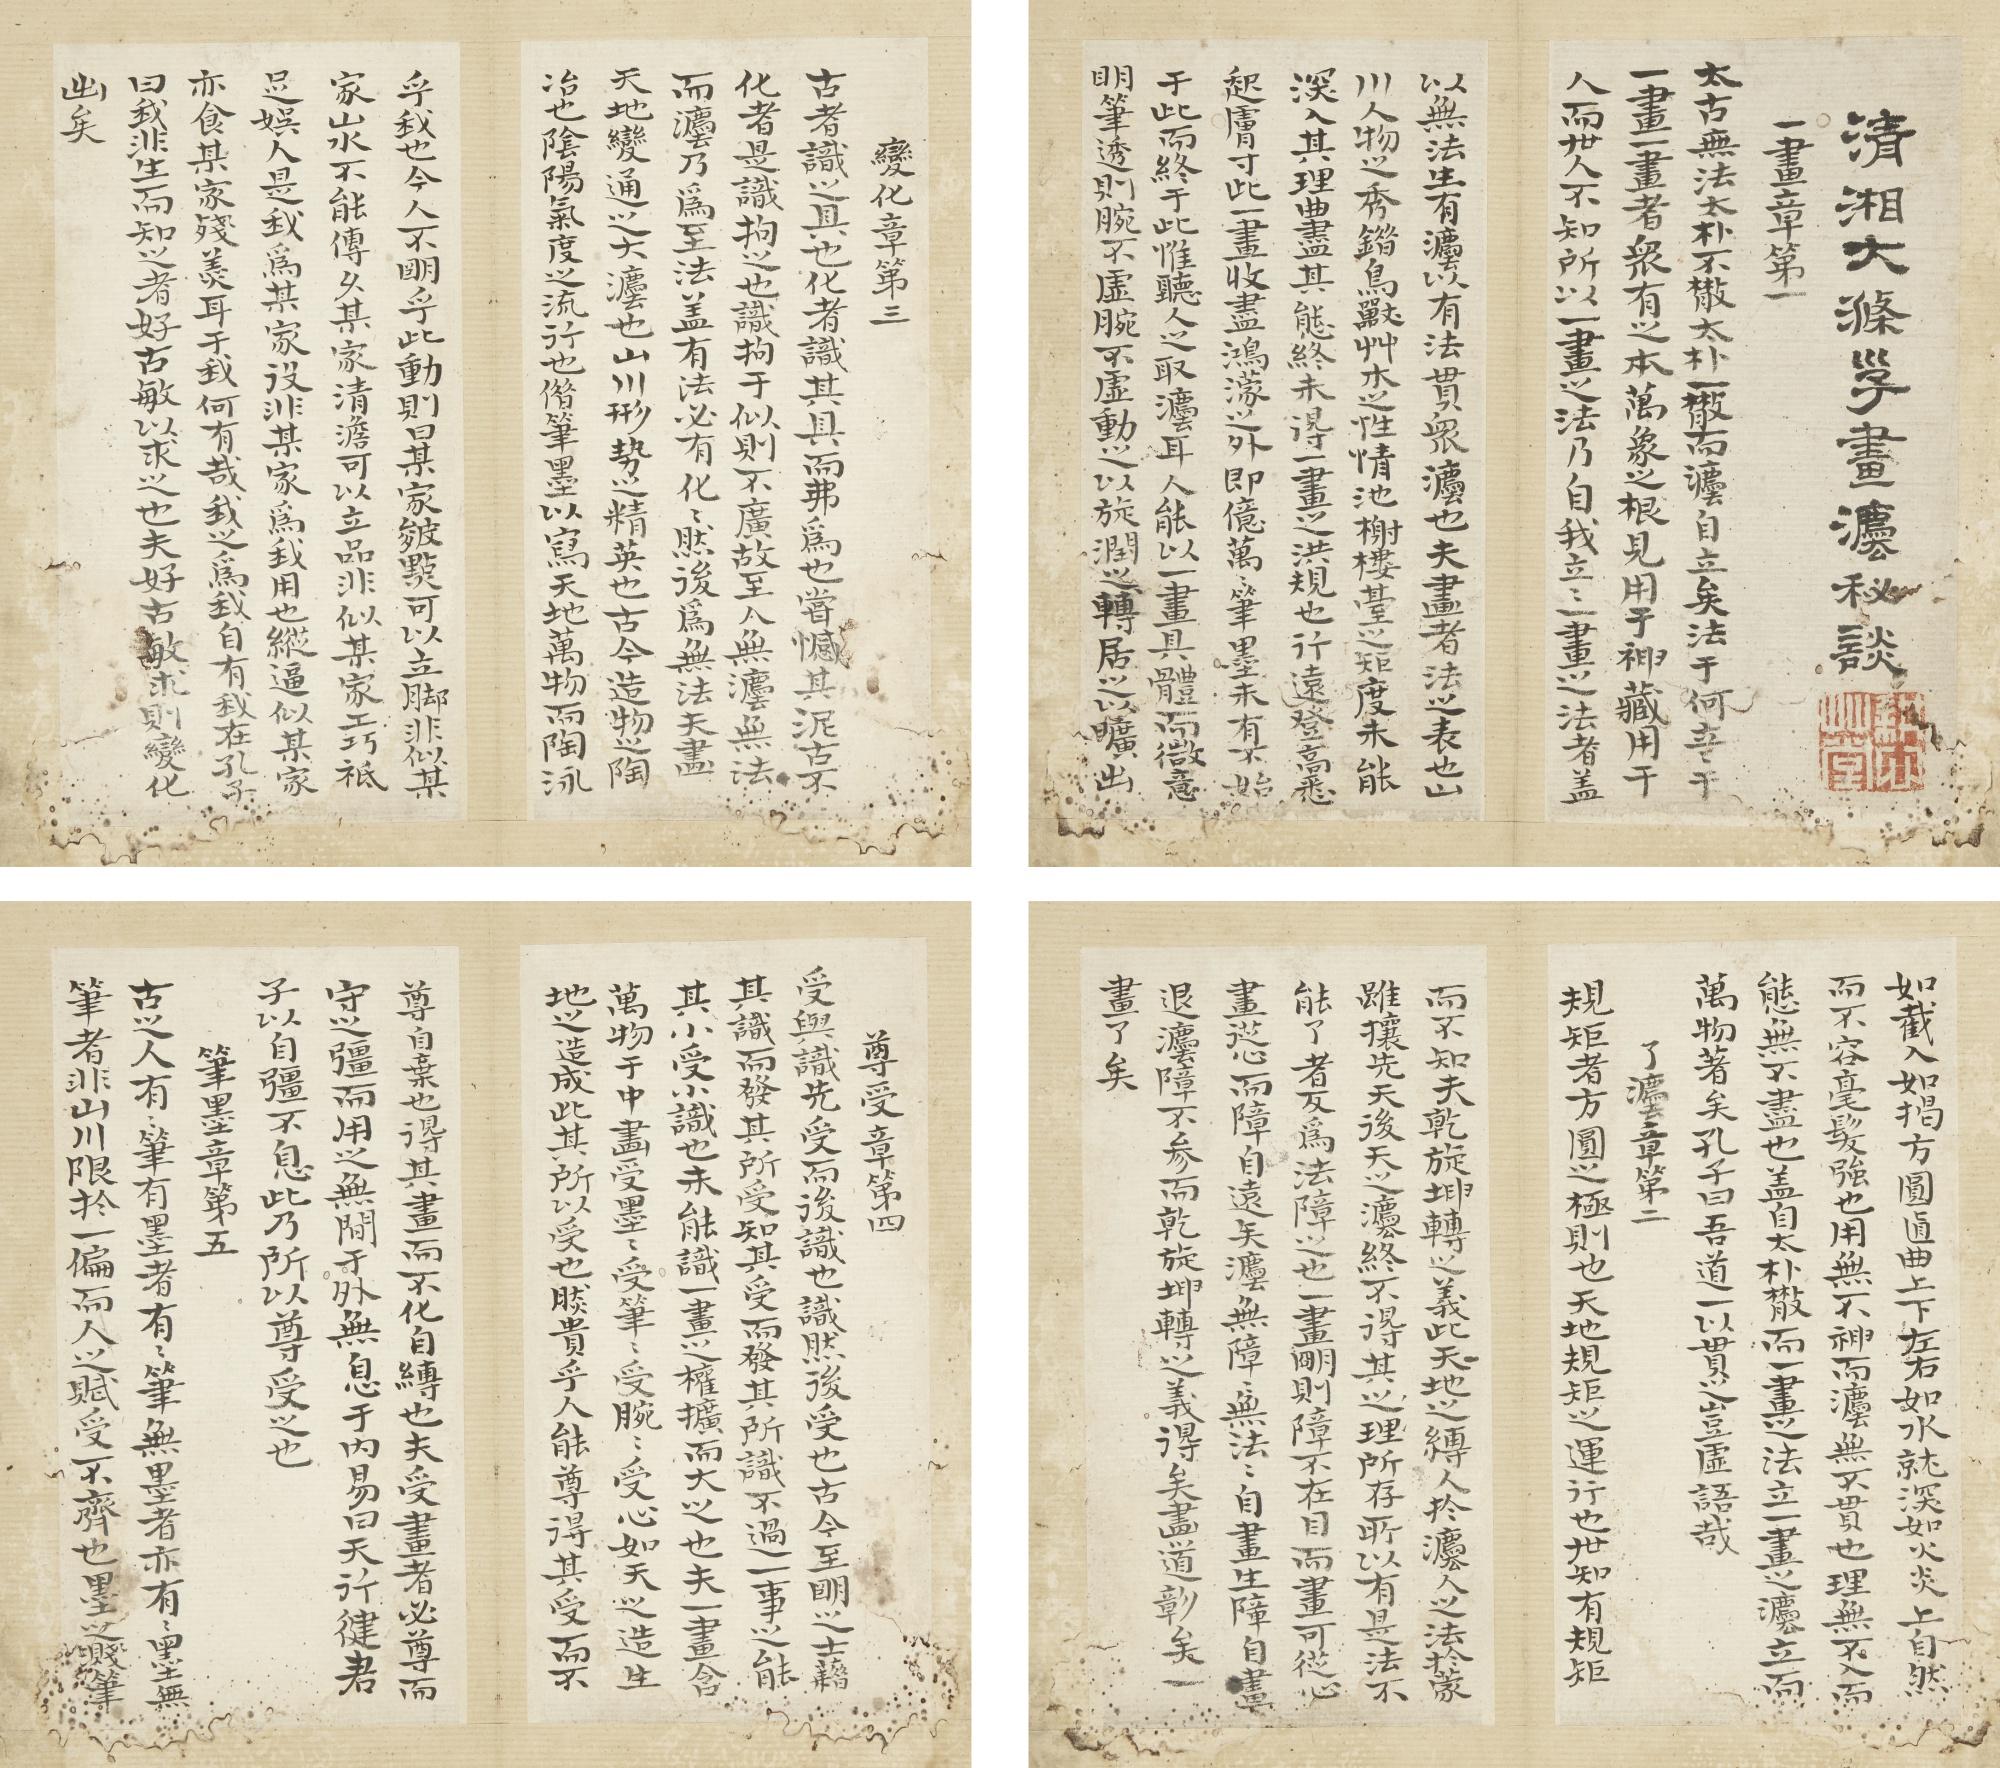 清湘大滌子畫灋秘談
一畫章第一
太古無法太朴不㪚太朴一㪚而灋自立矣法于何立〻于
一畫一畫者衆有之本萬象之根見用于神藏用于
人而世人不知所以一畫之法乃自我立〻一畫之法者盖
以無法生有灋以有法貫衆灋也夫畫者法之表也山
川人物之秀錯鳥獸艸木之性情池榭樓臺之矩度未能
深入其理曲盡其態終未得一畫之洪規也行遠登高悉
起膚寸此一畫收盡鴻濛之外即億萬〻筆墨未有不始
于此而終于此惟聽人之取灋耳人能以一畫具體而微意
明筆透則腕不虛腕不虛動之以旋潤之轉居之以曠出
如截入如揭方圓直曲上下左右如水就深如火炎上自然
而不容毫髮強也用無不神而灋無不貫也理無不入而
態無不盡也盖自太朴㪚而一畫之法立一畫之灋立而
萬物著矣孔子曰吾道一以貫之豈虛語哉
了灋章第二
規矩者方圓之極則也天地規矩之運行也世知有規矩
而不知夫乾旋坤轉之義此天地之縛人於灋人之法於蒙
雖攘先天後天之灋終不得其之理所存所以有是法不
能了者反爲法障之也一畫明則障不在目而畫可從心
畫從心而障自遠矣灋無障〻無法〻自畫生障自畫
退灋障不參而乾旋坤轉之義得矣畫道彰矣一
畫了矣
變化章第三
古者識之具也化者識其具而弗爲也嘗憾其泥古不
化者是識拘之也識拘于似則不廣故至人無灋無法
而灋乃爲至法盖有法必有化〻然後爲無法夫畫
天地變通之大灋也山川形勢之精英也古今造物之陶
冶也陰陽氣度之流行也借筆墨以寫天地萬物而陶泳
乎我也今人不明乎此動則曰某家皴點可以立脚非似某
家山水不能傳久某家清澹可以立品非似某家工巧祗
足娛人是我爲某家役非某家爲我用也縱逼似某家
亦食某家殘羹耳于我何有哉我之爲我自有我在孔子
曰我非生而知之者好古敏以求之也夫好古敏求則變化
出矣
尊受章第四
受與識先受而後識也識然後受也古今至明之士藉
其識而發其所受知其受而發其所識不過一事之能
其小受小識也未能識一畫之權擴而大之也夫一畫含
萬物于中畫受墨〻受筆〻受腕〻受心如天之造生
地之造成此其所以受也然貴乎人能尊得其受而不
尊自棄也得其畫而不化自縛也夫受畫者必尊而
守之彊而用之無間于外無息于内易曰天行健君
子以自彊不息此乃所以尊受之也
筆墨章第五
古之人有〻筆有墨者有〻筆無墨者亦有〻墨無
筆者非山川限於一偏而人之賦受不齊也墨之濺筆